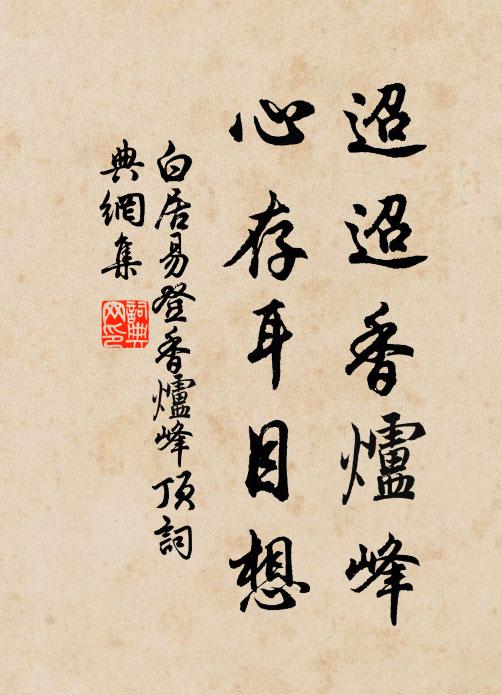 迢迢香爐峰
心存耳目想
白居易登香爐峰頂詞
典網集
詞典
网印